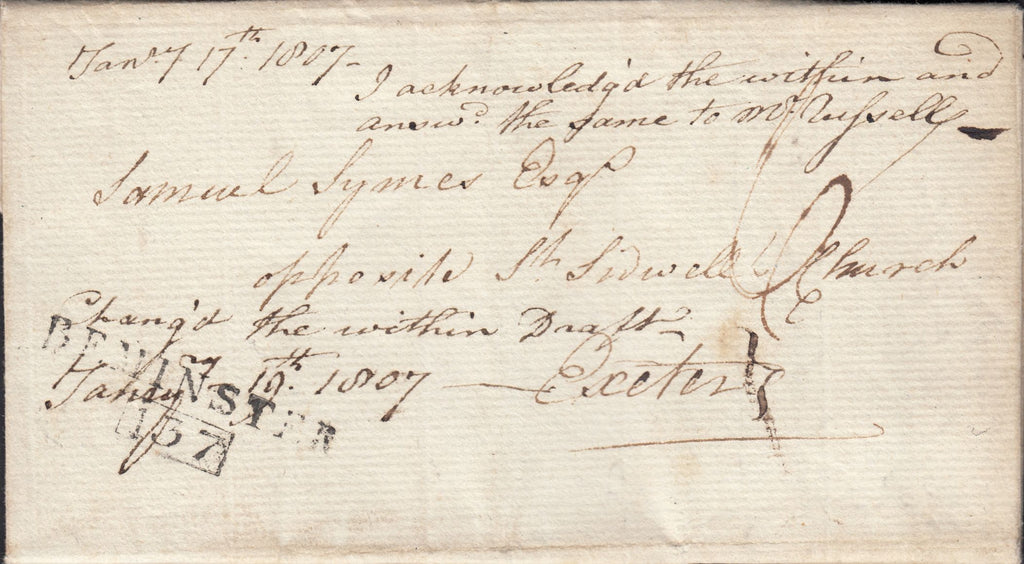 Jany 17th. 1807-
I acknowledg'd the within and
answd. the same to Mr Russell
Samuel Symes Esqr
opposite St Sidwells Church
Chang'd the within Draft-
Jany 19th. 1807 — Exeter
BEMINSTER
157